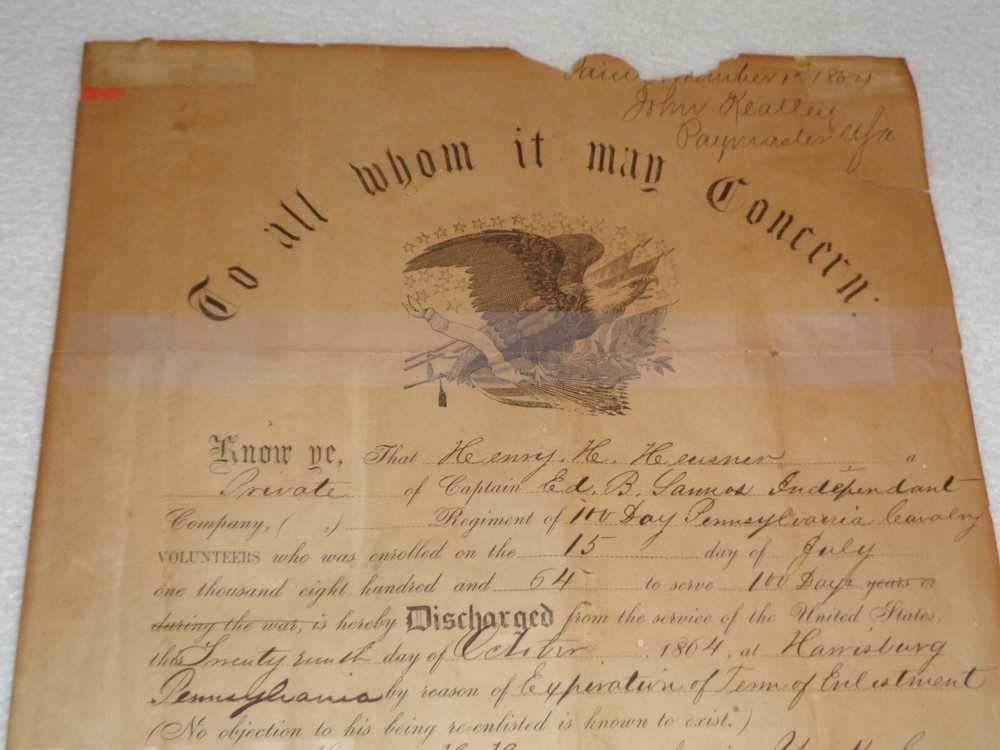 1864
John Keatley
Paymaster USA
To all whom it may Concern.
Know ye, That Henry. H. Heusner a
Private of Captain Ed. B. Independant
Company, ( ,) Regiment of 100 Day Pennsylvania Cavalry
VOLUNTEERS who was enrolled on the 15 day of July
one thousand eight hundred and 64 to serve 100 Days years or
during the war, is hereby Discharged from the service of the United States,
this Twenty ninth day of October, 1864, at Harrisburg
Pennsylvania by reason of Expiration of Term of Enlistment
(No objection to his being re-enlisted is known to exist.)